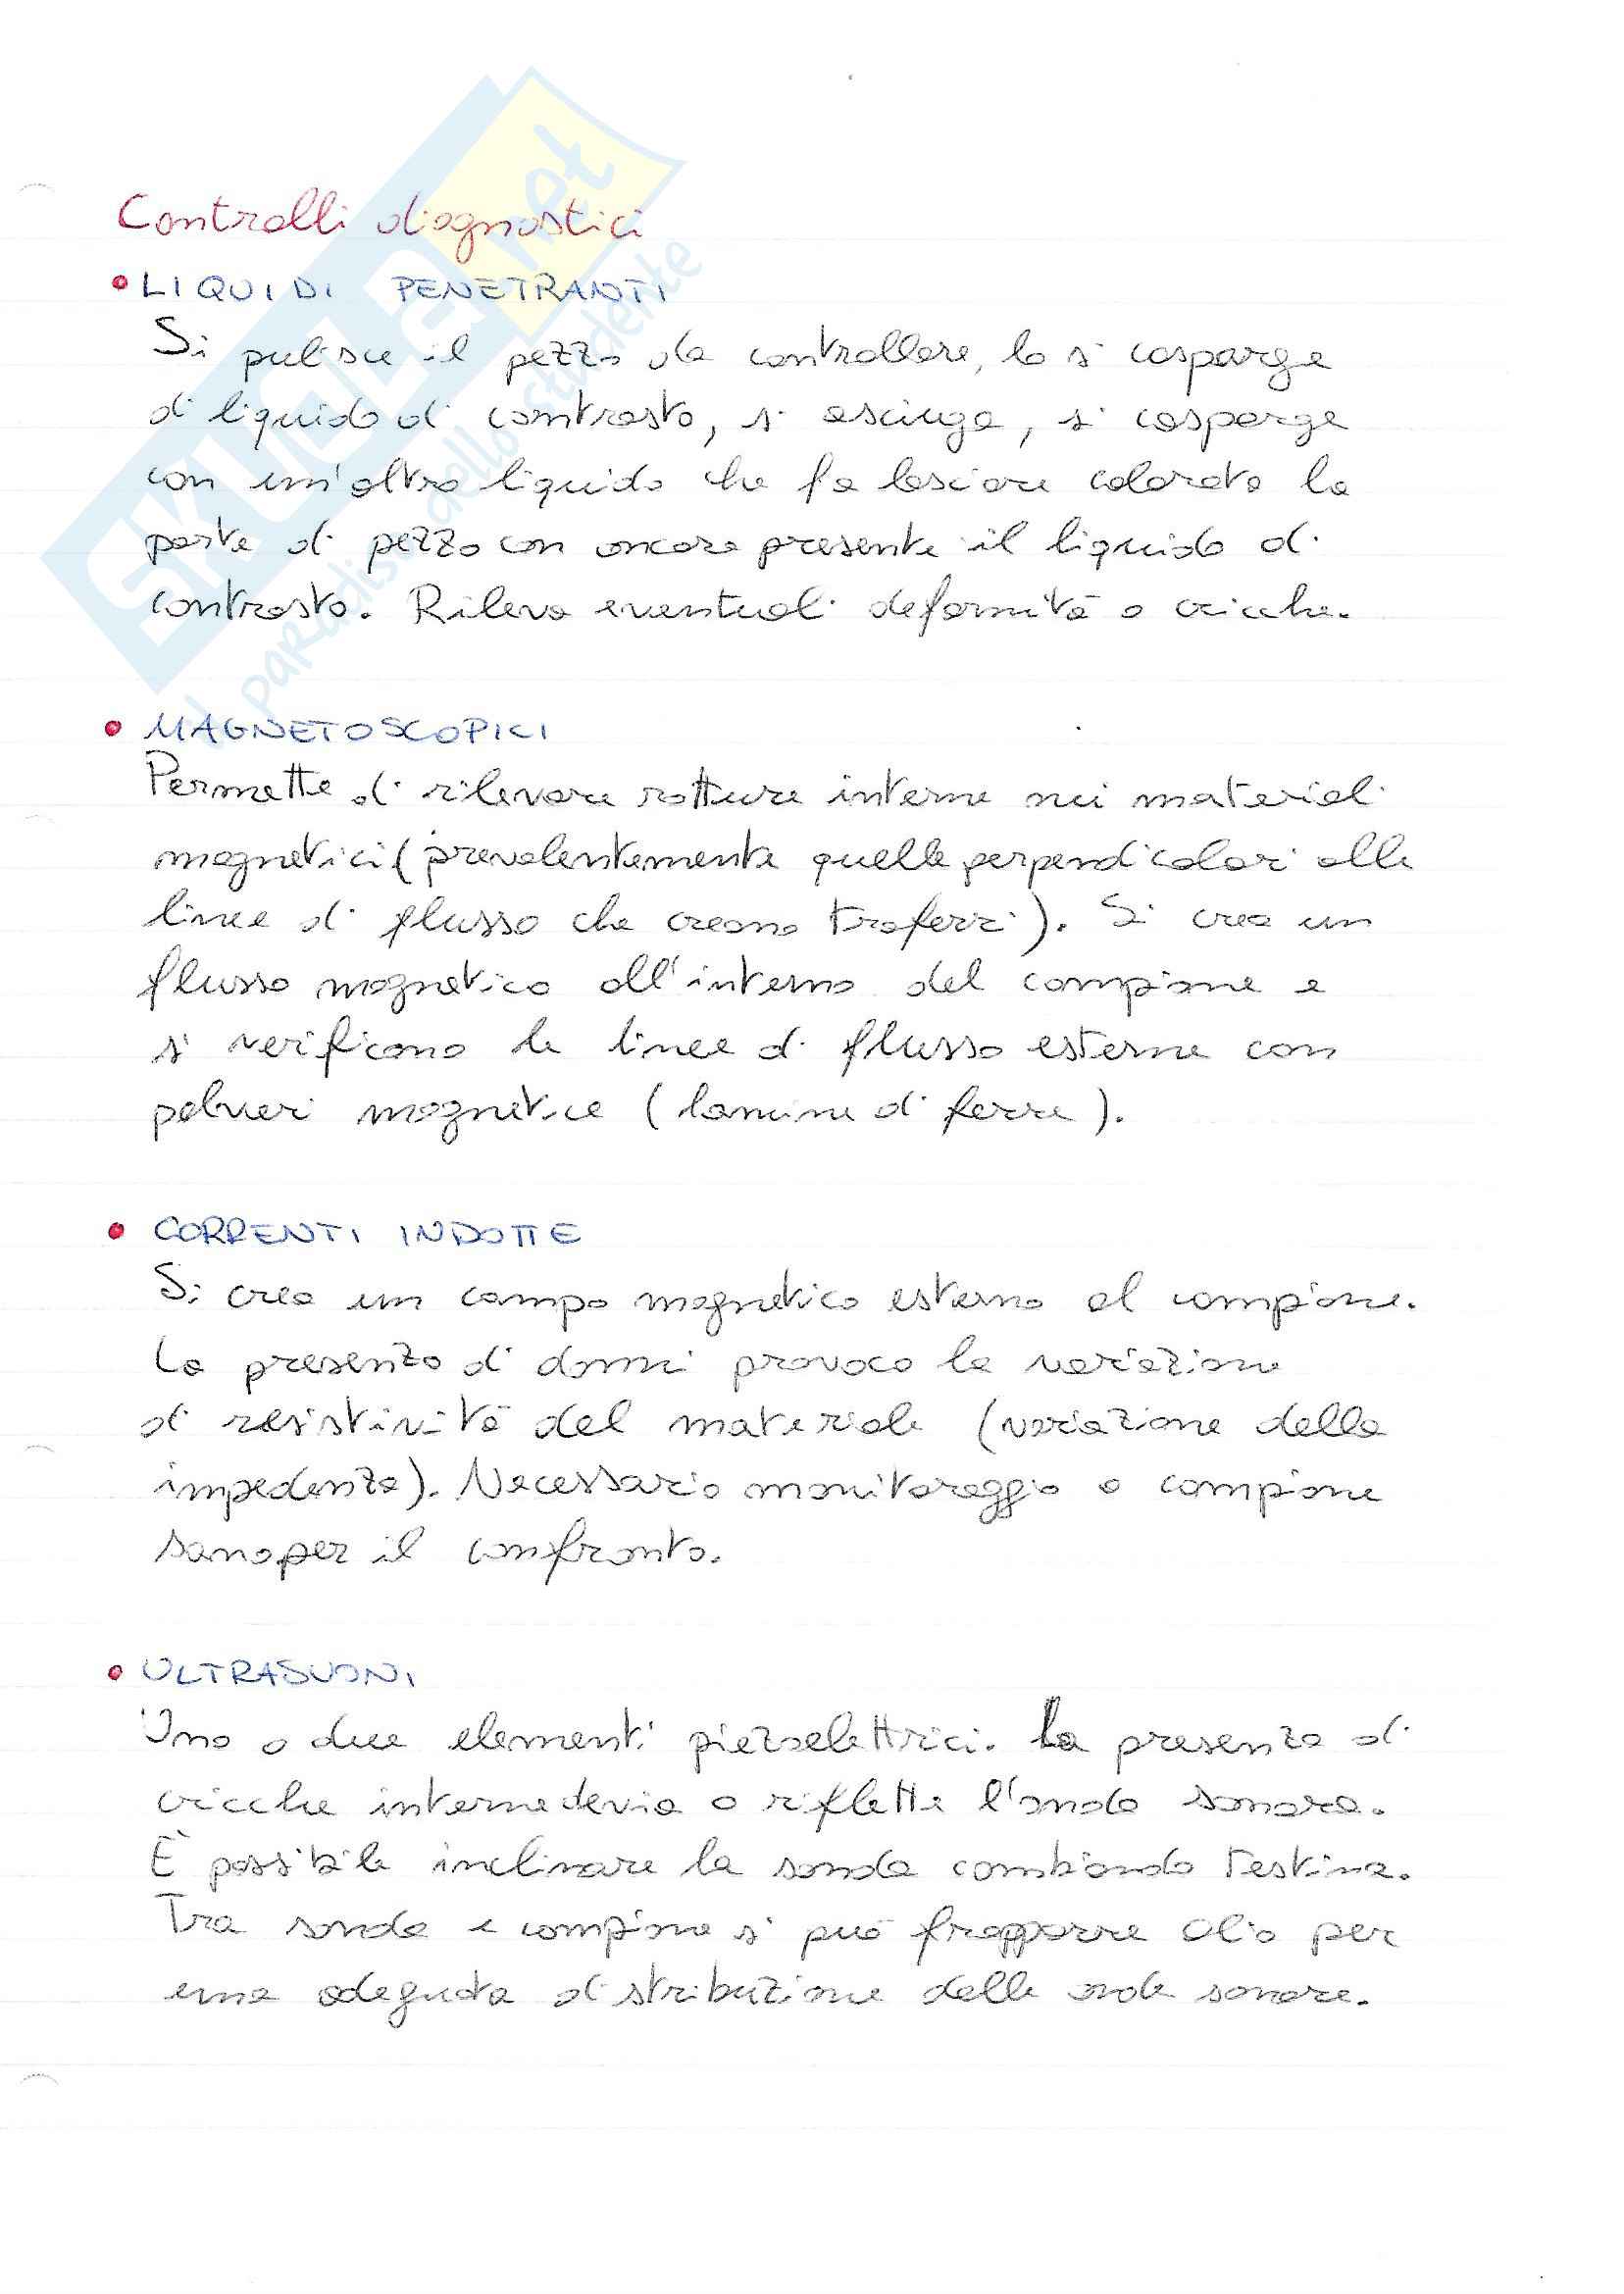 Controlli diagnostici
• LIQUIDI PENETRANTI
Si pulisce il pezzo da controllare, lo si cosparge
di liquido di contrasto, si asciuga, si cosparge
con un'altro liquido che fa lasciare colorata la
parte di pezzo con ancora presente il liquido di
contrasto. Rileva eventuali deformità o cricche.
• MAGNETOSCOPICI
Permette di rilevare rotture interne nei materiali
magnetici (prevalentemente quelle perpendicolari alle
linee di flusso che creano traferri). Si crea un
flusso magnetico all'interno del campione e
si verificano le linee di flusso esterne con
polveri magnetice (lamine di ferre).
• CORRENTI INDOTTE
Si crea un campo magnetico esterno al campione.
La presenza di danni provoca la variazione
di resistività del materiale (variazione della
impedenza). Necessario monitoraggio o campione
sano per il confronto.
• ULTRASUONI
Uno o due elementi piezoelettrici. La presenza di
cricche interne devia o riflette l'onda sonora.
È possibile inclinare la sonda cambiando testina.
Tra sonda e campione si può frapporre olio per
una adeguata distribuzione delle onde sonore.
SKUOLA.net
il paradiso dello studente